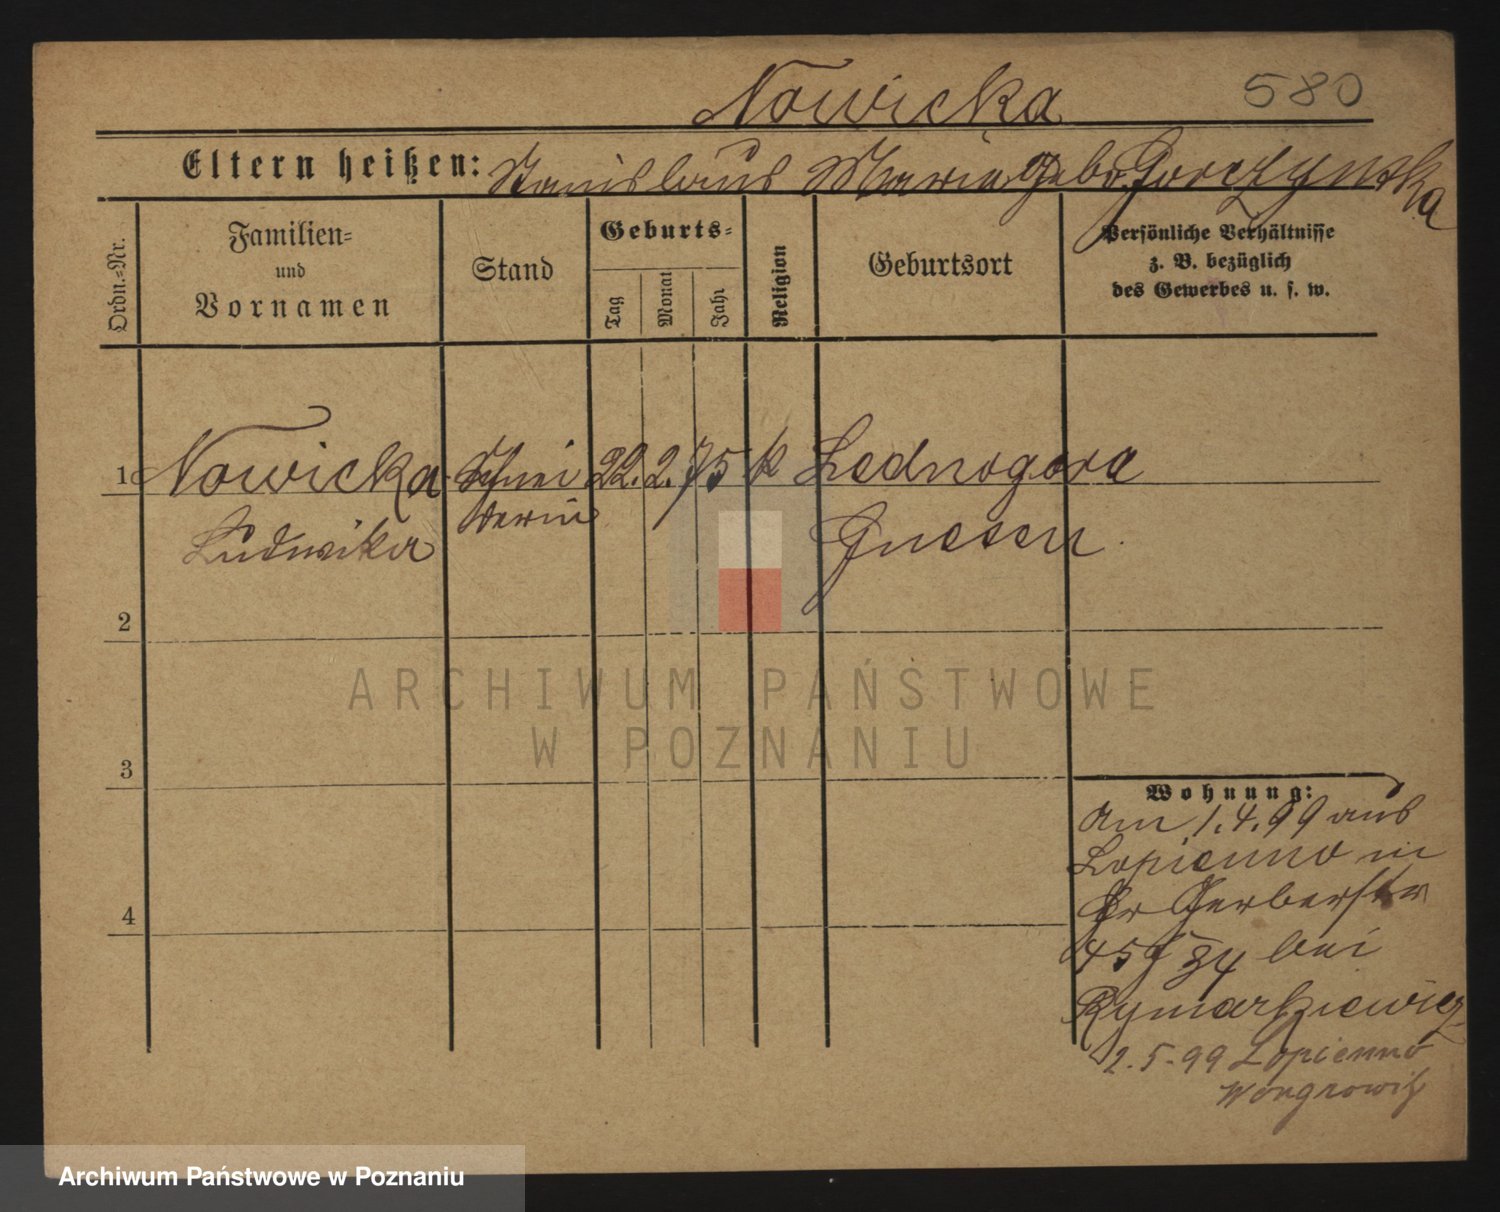 Nowicka 580
Eltern heißen: Stanislaus Maria geb. Gorczynska
Ordn.-Nr.
Familien- und Vornamen
Stand
Geburts-
Tag
Monat
Jahr
Religion
Geburtsort
Persönliche Verhältnisse
z. B. bezüglich
des Gewerbes u. s. w.
1 Nowicka Schnei 22. 2. 75 k Lednogora
Ludwika derin Gnesen
2
3
4
Wohnung:
Am 1.4.99 aus
Lopienno in
Gr Gerberstr
45 bei
Rymarkiewicz
2.5.99 Lopienno
Wongrowitz
ARCHIWUM PAŃSTWOWE
W POZNANIU
Archiwum Państwowe w Poznaniu